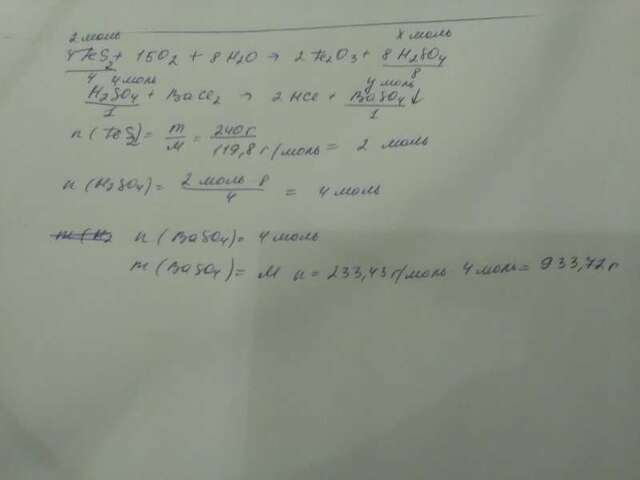 2 моль x моль
4FeS2 + 15O2 + 8H2O → 2Fe2O3 + 8H2SO4
4 4 моль y моль 8
H2SO4 + BaCl2 → 2HCl + BaSO4↓
1 1
n(FeS2) = m/M = 240 г/119,8 г/моль = 2 моль
n(H2SO4) = 2 моль · 8/4 = 4 моль
n(BaSO4) = 4 моль
m(BaSO4) = M n = 233,43 г/моль 4 моль = 933,72 г